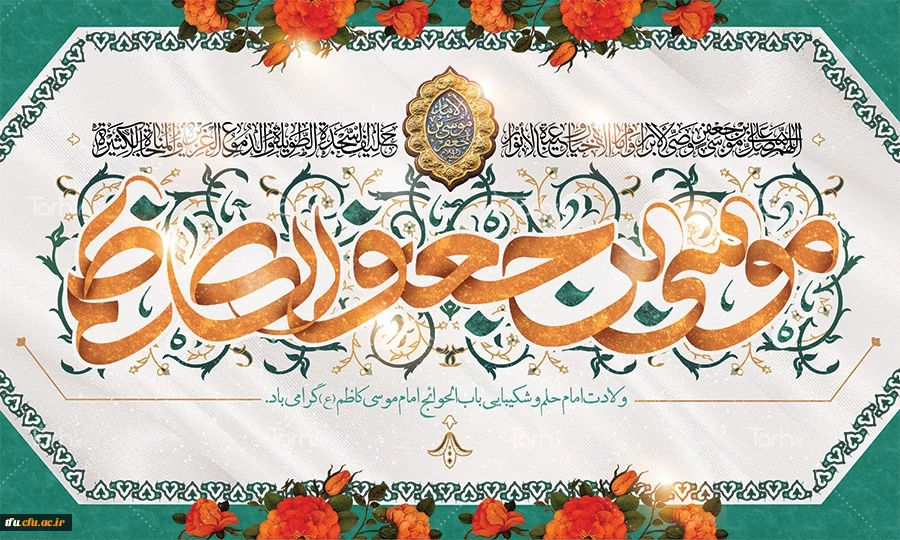 الامام
موسی بن
جعفر
اللهم صل علی موسی بن جعفر وصی الابرار و امام الاخیار و عیبة الانوار
حلیف السجدة الطویلة و الدموع الغزیرة و المناجاة الکثیرة
موسی بن جعفر الکاظم
ولادت امام حلم و شکیبایی باب الحوائج امام موسی کاظم (ع) گرامی باد.
tfu.cfu.ac.ir